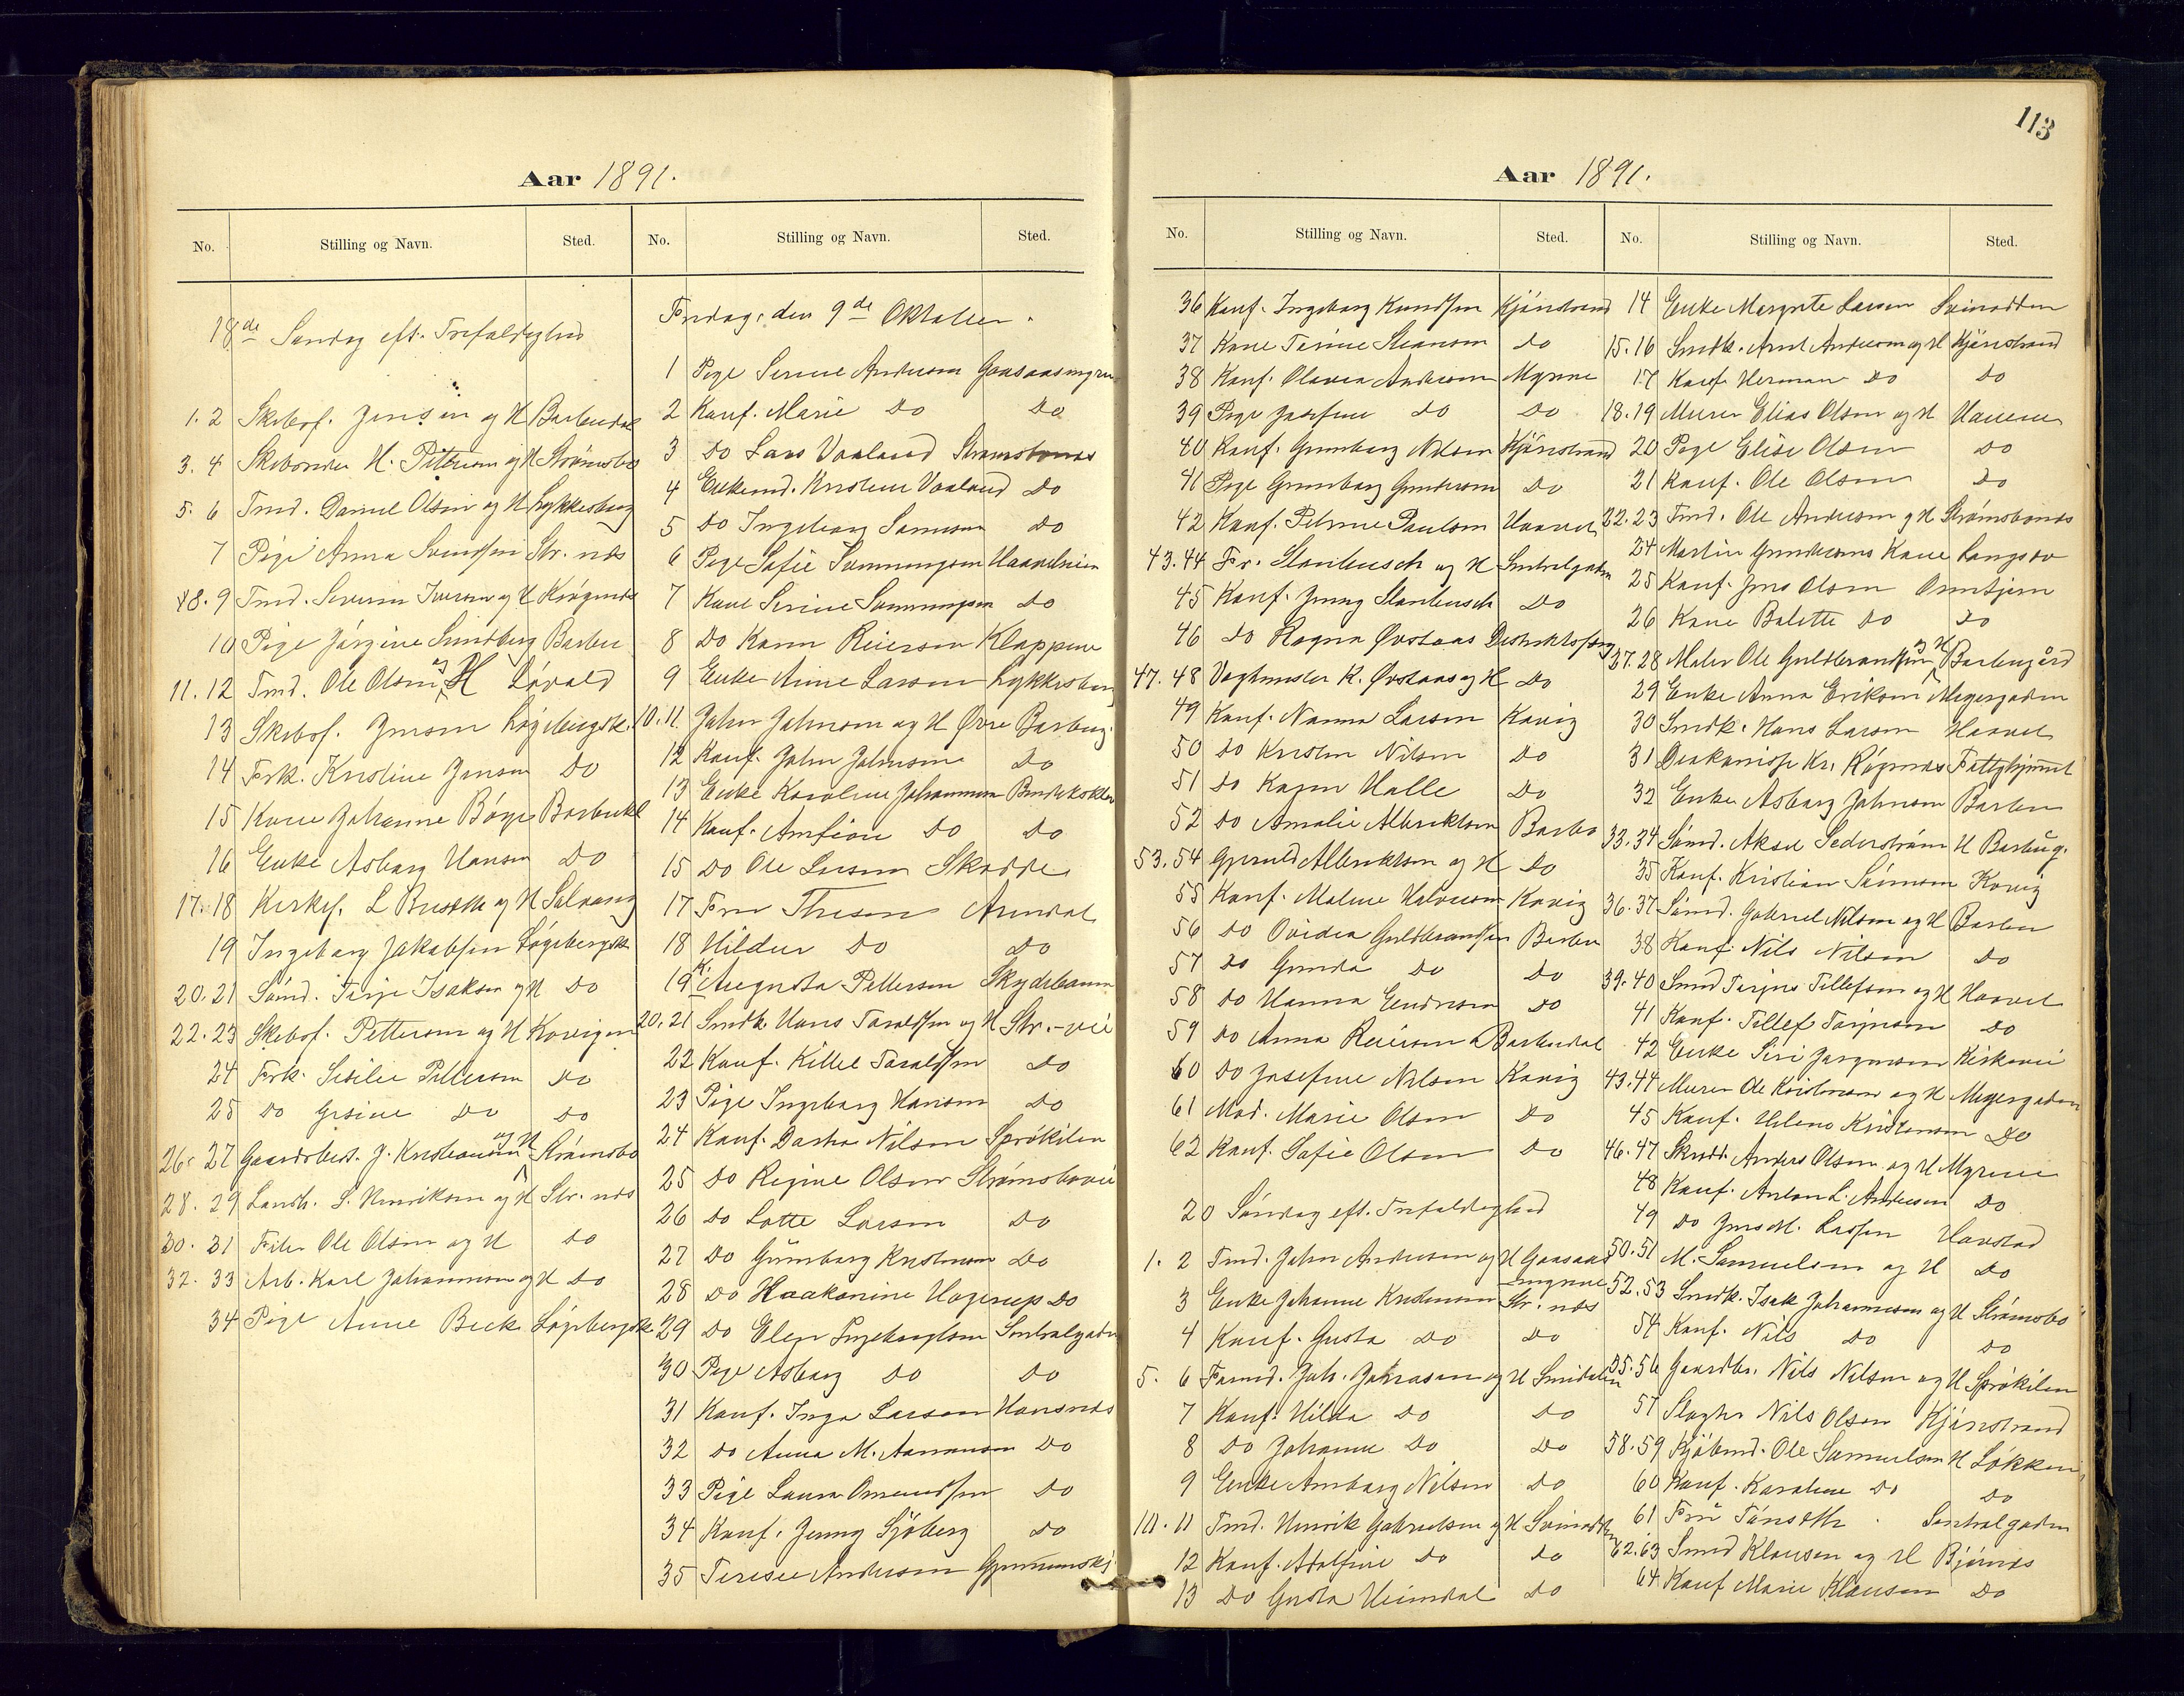 113
Aar 1891.
No. Stilling og Navn. Sted. No. Stilling og Navn. Sted.
18de Søndag eft. Trefoldighed
1. 2 Skibsf. Jensen og H Barbudal
3. 4 Skibsreder H. Pettersen og H Strømsbo
5. 6 Tmd. Daniel Olsen og H Lykkesberg
7 Pige Anna Svendsen Str. nds
8. 9 Tmd. Severin Iversen og H
10 Pige Jørgine Smidberg Barbu
11. 12 Tmd. Ole Olsen og H Løvold
13 Skibsf. Jensen Løgebergsk.
14 Frk. Kristine Jensen do
15 Kone Johanne Børge Barbukl
16 Enke Asborg Hansen do
17. 18 Kirkes. L og H Solvang
19 Ingeborg Jakobsen Løgebergsk
20. 21 Sømd. Terje Isaksen og H do
22. 23 Skibsf. Pettersen og H Kovigen
24 Frk. Sesilie Pettersen do
25 do Gesine do do
26. 27 Gaardsbest. J. Kristiansen og H Strømsbo
28. 29 Landh. S. Henriksen og H Str. nds
30. 31 Filer Ole Olsen og H do
32. 33 Arb. Karl Johannesen og H do
34 Pige Anne Beck Løgebergsk
Fredag den 9de Oktober.
1 Pige Serine Andersen Gaasaasmyren
2 Konf. Marie do do
3 do Lars Vaaland Strømsbonds
4 Enkemd. Kristen Vaaland do
5 do Ingeborg Samuson do
6 Pige Sofie Svenningsen
7 Kone Serine Svenningsen do
8 do Karen Reierson Klappene
9 Enke Anne Larsen Lykkesberg
10. 11 John Johnsen og H Øvre Barbug.
12 Konf. John Johnsen do
13 Enke Karoline Johannesen
14 Konf. Amfion do do
15 do Ole Larsen Skodde
17 Fru Thesen Arendal
18 Hildur do do
19 K. Augusta Pettersen Skydebanen
20. 21 Smdk. Hans Taraldsen og H Str.-vei
22 Konf. Kittel Taraldsen do
23 Pige Ingeborg Hansen do
24 Konf. Dorthea Nilsen Sprøkilen
25 do Regine Olsen Strømsbovei
26 do Lotte Larsen do
27 do Gunborg Kristensen do
28 do Haakonine Hagerup do
29 do Elen Ingebregtsen Sentralgaden
30 Pige Asborg do do
31 Konf. Inga Larsen Hansnds
32 do Anna M. Aanonsen do
33 Pige Laura Omundsen do
34 Konf. Jenny Sjøberg do
35 Terese Andersen
Aar 1891.
No. Stilling og Navn. Sted. No. Stilling og Navn. Sted.
36 Konf. Ingeborg Knudsen Kjønstrand
37 Kone Terine Steansen do
38 Konf. Olava Andersen Myrene
39 Pige Josefine do do
40 Konf. Gunborg Nilsen Kjønstrand
41 Pige Gunborg Gundersen do
42 Konf. Petrine Paulsen Haavet
43. 44 Fr. Stambusch og H Sentralgaden
45 Konf. Jenny Stambusch do
46 do Ragna Øvstaas
47. 48 Vagtmester K. Øvstaas og H do
49 Konf. Nanna Larsen Kovig
50 do Kristen Nilsen do
51 do Karen Halle do
52 do Amalie Albriktsen Barbo
53. 54 Gjeruld Albriktsen og H do
55 Konf. Maline Halvorsen Kovig
56 do Ovidea Guldbrandsen Barbu
57 do Gunda do do
58 do Hanna Endresen do
59 do Anna Reierson Barbudal
60 do Josefine Nilsen Kovig
61 Mad. Marie Olsen do
62 Konf. Sofie Olsen do
20 Søndag eft. Trefoldighed
1. 2 Tmd. John Andersen og H Gaasaasmyrene
3 Enke Johanne Kristensen Str. nds
4 Konf. Gusta do do
5. 6 Farmd. Joh. Zakrasen og H Smidalen
7 Konf. Hilda do do
8 do Johanne do do
9 Enke Amborg Nilsen do
10. 11 Tmd. Henrik Gabrielsen og H Svinodden
12 Konf. Adolfine do do
13 do Gusta Heimdal do
14 Enke Margrete Larsen Svinodden
15. 16 Smdk. Arnt Andersen og H Kjønstrand
17 Konf. Herman do do
18. 19 Murer Elias Olsen og H Havene
20 Pige Elise Olsen do
21 Konf. Ole Olsen do
22. 23 Tmd. Ole Andersen og H Strømsbonds
24 Martin Gundersens Kone Langsæ
25 Konf. Jens Olsen Ormtjern
26 Kone Balette do do
27. 28 Maler Ole Guldbrandsen og H Barbugård
29 Enke Anna Eriksen Meyergaden
30 Smdk. Hans Larsen Haavet
31 Diakonisse Kr. Røgenes Fattighjemmet
32 Enke Asborg Johnsen Barbu
33. 34 Sømd. Aksel Sederstrøm H Barbug.
35 Konf. Kristian Sørensen Kovig
36. 37 Sømd. Gabriel Nilsen og H Barbu
38 Konf. Nils Nilsen do
39. 40 Smed Terjus Tellefsen og H Haavet
41 Konf. Tellef Terjusen do
42 Enke Siri Jørgensen Kirkevei
43. 44 Murer Ole Kristensen og H Meyergaden
45 Konf. Helene Kristensen do
46. 47 Skredd. Anders Olsen og H Myrene
48 Konf. Anton L. Andersen do
49 do Jens M. Larsen Havstad
50. 51 M. Samuelsen og H do
52. 53 Smedk. Isak Johannesen og H Strømsbo
54 Konf. Nils do do
55. 56 Gaardbr. Nils Nilsen og H Sprøkilen
57 Slagter Nils Olsen Kjønstrand
58. 59 Kjøbmd. Ole Samuelsen H Løkken
60 Konf. Karoline do do
61 Fru Tønseth Sentralgaden
62. 63 Smed Klausen og H Bjørnds
64 Konf Marie Klausen do